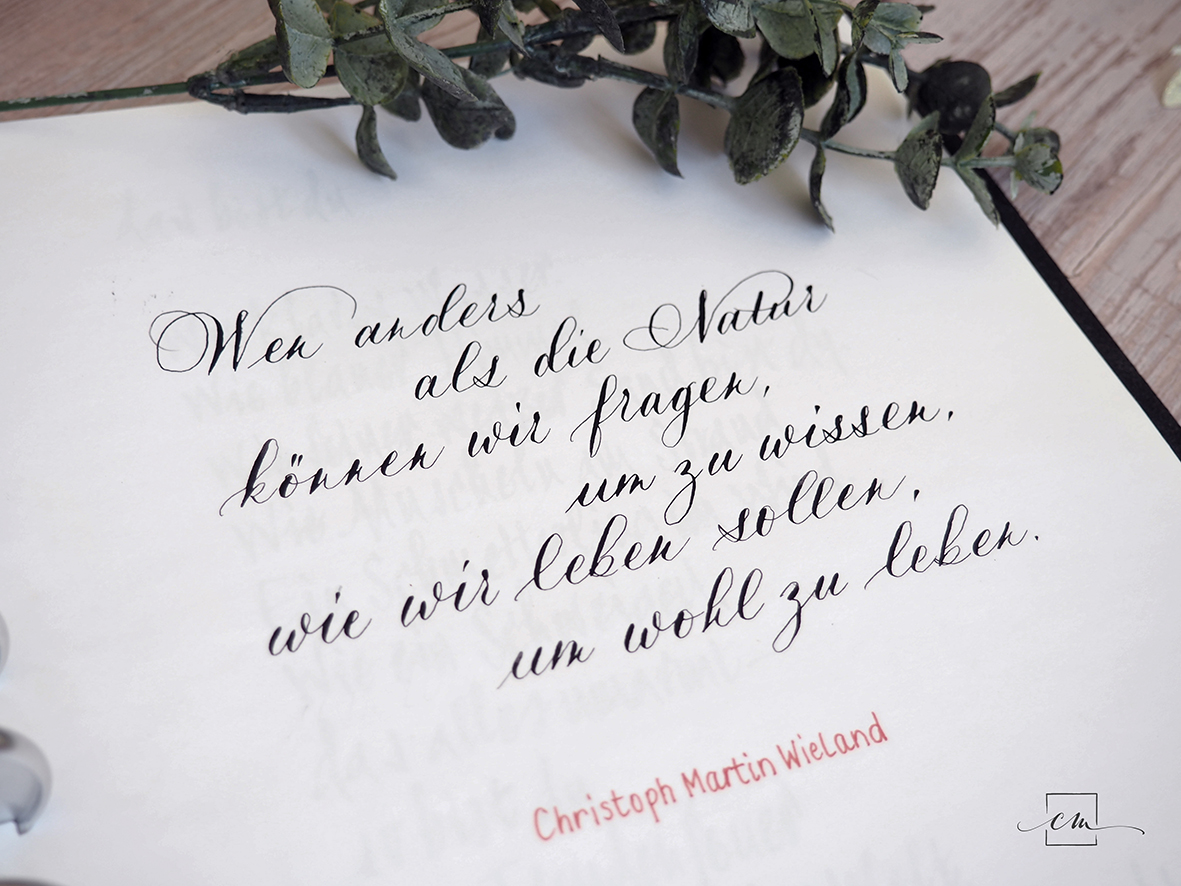 Wen anders
als die Natur
können wir fragen,
um zu wissen,
wie wir leben sollen,
um wohl zu leben.
Christoph Martin Wieland
cm